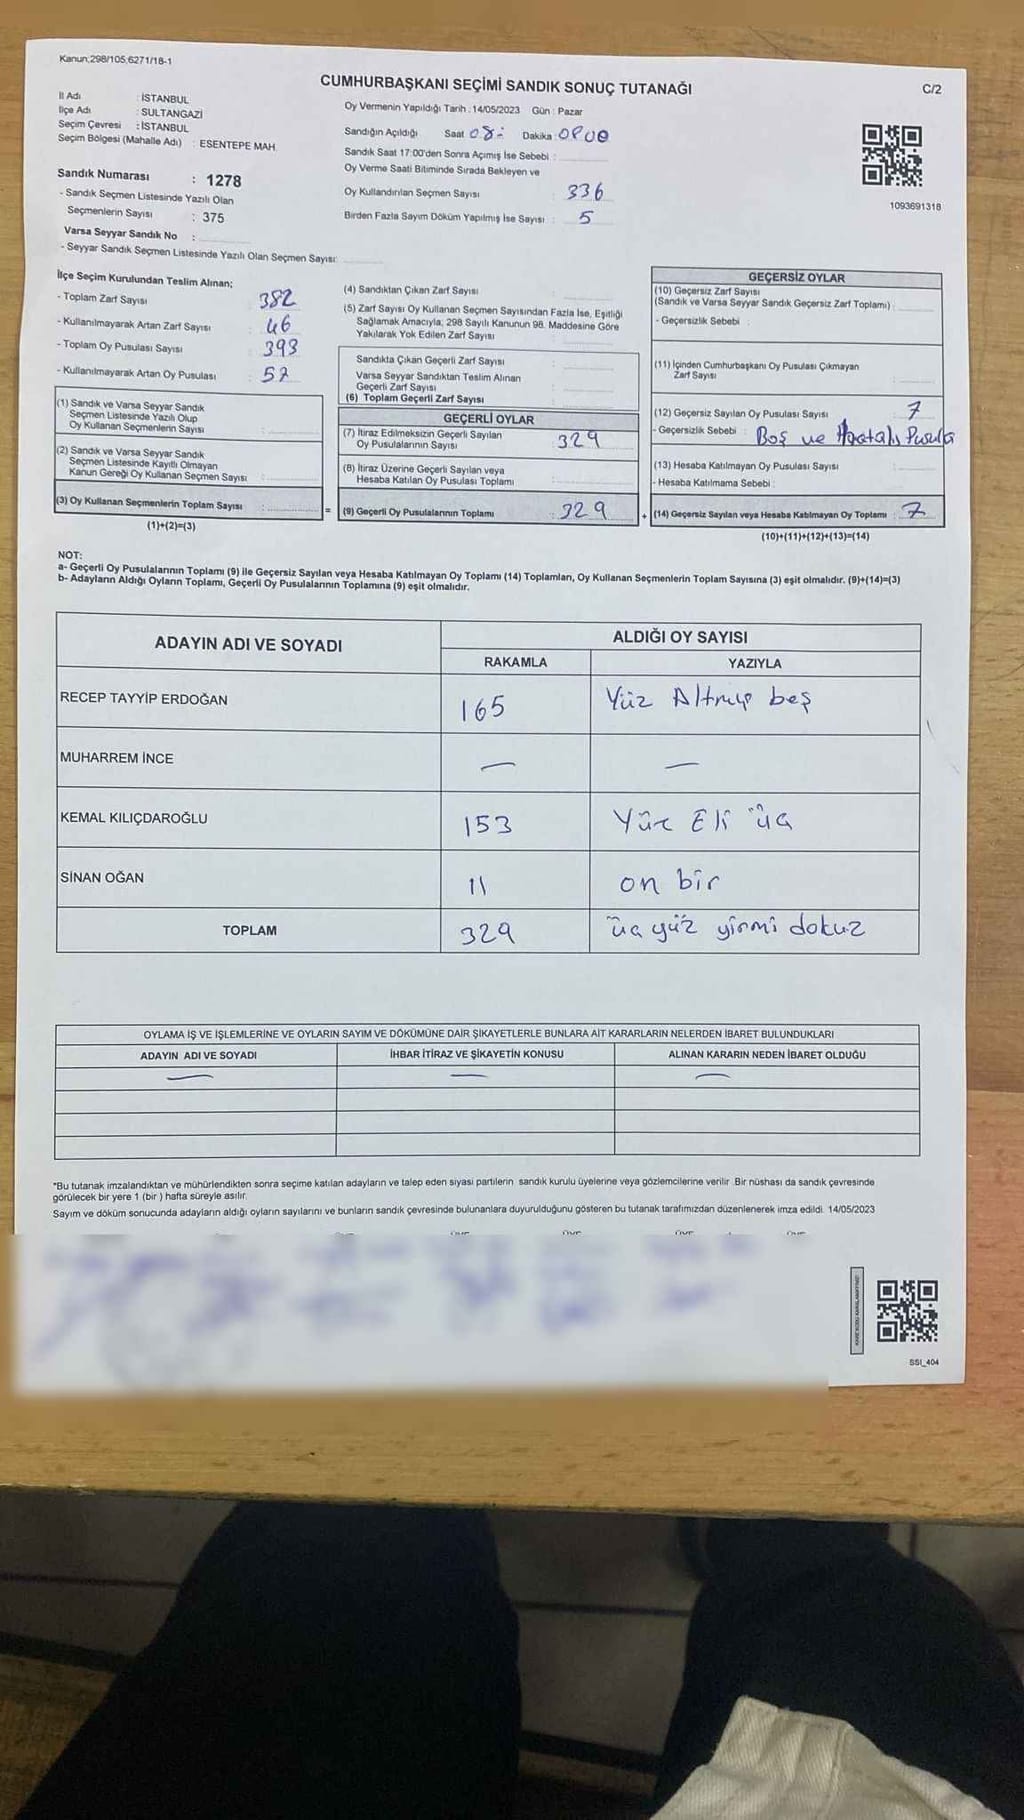 Kanun;298/105,6271/18-1
CUMHURBAŞKANI SEÇİMİ SANDIK SONUÇ TUTANAĞI
C/2
İl Adı : İSTANBUL
İlçe Adı : SULTANGAZİ
Seçim Çevresi : İSTANBUL
Seçim Bölgesi (Mahalle Adı) : ESENTEPE MAH.
Oy Vermenin Yapıldığı Tarih : 14/05/2023 Gün : Pazar
Sandığın Açıldığı Saat 08: Dakika :
Sandık Saat 17:00'den Sonra Açımış İse Sebebi :
Oy Verme Saati Bitiminde Sırada Bekleyen ve
Oy Kullandırılan Seçmen Sayısı : 336
Birden Fazla Sayım Döküm Yapılmış İse Sayısı : 5
1093691318
Sandık Numarası : 1278
- Sandık Seçmen Listesinde Yazılı Olan
Seçmenlerin Sayısı : 375
Varsa Seyyar Sandık No :
- Seyyar Sandık Seçmen Listesinde Yazılı Olan Seçmen Sayısı:
İlçe Seçim Kurulundan Teslim Alınan;
- Toplam Zarf Sayısı : 382
- Kullanılmayarak Artan Zarf Sayısı : 46
- Toplam Oy Pusulası Sayısı : 393
- Kullanılmayarak Artan Oy Pusulası : 57
(1) Sandık ve Varsa Seyyar Sandık
Seçmen Listesinde Yazılı Olup
Oy Kullanan Seçmenlerin Sayısı :
(2) Sandık ve Varsa Seyyar Sandık
Seçmen Listesinde Kayıtlı Olmayan
Kanun Gereği Oy Kullanan Seçmen Sayısı :
(3) Oy Kullanan Seçmenlerin Toplam Sayısı : =
(1)+(2)=(3)
(4) Sandıktan Çıkan Zarf Sayısı :
(5) Zarf Sayısı Oy Kullanan Seçmen Sayısından Fazla İse, Eşitliği
Sağlamak Amacıyla; 298 Sayılı Kanunun 98. Maddesine Göre
Yakılarak Yok Edilen Zarf Sayısı :
Sandıkta Çıkan Geçerli Zarf Sayısı :
Varsa Seyyar Sandıktan Teslim Alınan
Geçerli Zarf Sayısı :
(6) Toplam Geçerli Zarf Sayısı :
GEÇERLİ OYLAR
(7) İtiraz Edilmeksizin Geçerli Sayılan
Oy Pusulalarının Sayısı : 329
(8) İtiraz Üzerine Geçerli Sayılan veya
Hesaba Katılan Oy Pusulası Toplamı :
(9) Geçerli Oy Pusulalarının Toplamı : 329 +
GEÇERSİZ OYLAR
(10) Geçersiz Zarf Sayısı
(Sandık ve Varsa Seyyar Sandık Geçersiz Zarf Toplamı) :
- Geçersizlik Sebebi :
(11) İçinden Cumhurbaşkanı Oy Pusulası Çıkmayan
Zarf Sayısı :
(12) Geçersiz Sayılan Oy Pusulası Sayısı : 7
- Geçersizlik Sebebi : Boş ve Hatalı Pusula
(13) Hesaba Katılmayan Oy Pusulası Sayısı :
- Hesaba Katılmama Sebebi :
(14) Geçersiz Sayılan veya Hesaba Katılmayan Oy Toplamı : 7
(10)+(11)+(12)+(13)=(14)
NOT:
a- Geçerli Oy Pusulalarının Toplamı (9) ile Geçersiz Sayılan veya Hesaba Katılmayan Oy Toplamı (14) Toplamları, Oy Kullanan Seçmenlerin Toplam Sayısına (3) eşit olmalıdır. (9)+(14)=(3)
b- Adayların Aldığı Oyların Toplamı, Geçerli Oy Pusulalarının Toplamına (9) eşit olmalıdır.
ADAYIN ADI VE SOYADI ALDIĞI OY SAYISI
RAKAMLA YAZIYLA
RECEP TAYYİP ERDOĞAN 165 Yüz Altmış beş
MUHARREM İNCE — —
KEMAL KILIÇDAROĞLU 153 Yüz Eli üç
SİNAN OĞAN 11 on bir
TOPLAM 329 üç yüz yirmi dokuz
OYLAMA İŞ VE İŞLEMLERİNE VE OYLARIN SAYIM VE DÖKÜMÜNE DAİR ŞİKAYETLERLE BUNLARA AİT KARARLARIN NELERDEN İBARET BULUNDUKLARI
ADAYIN ADI VE SOYADI İHBAR İTİRAZ VE ŞİKAYETİN KONUSU ALINAN KARARIN NEDEN İBARET OLDUĞU
— — —
*Bu tutanak imzalandıktan ve mühürlendikten sonra seçime katılan adayların ve talep eden siyasi partilerin sandık kurulu üyelerine veya gözlemcilerine verilir .Bir nüshası da sandık çevresinde
görülecek bir yere 1 (bir ) hafta süreyle asılır.
Sayım ve döküm sonucunda adayların aldığı oyların sayılarını ve bunların sandık çevresinde bulunanlara duyurulduğunu gösteren bu tutanak tarafımızdan düzenlenerek imza edildi. 14/05/2023
SSI_404